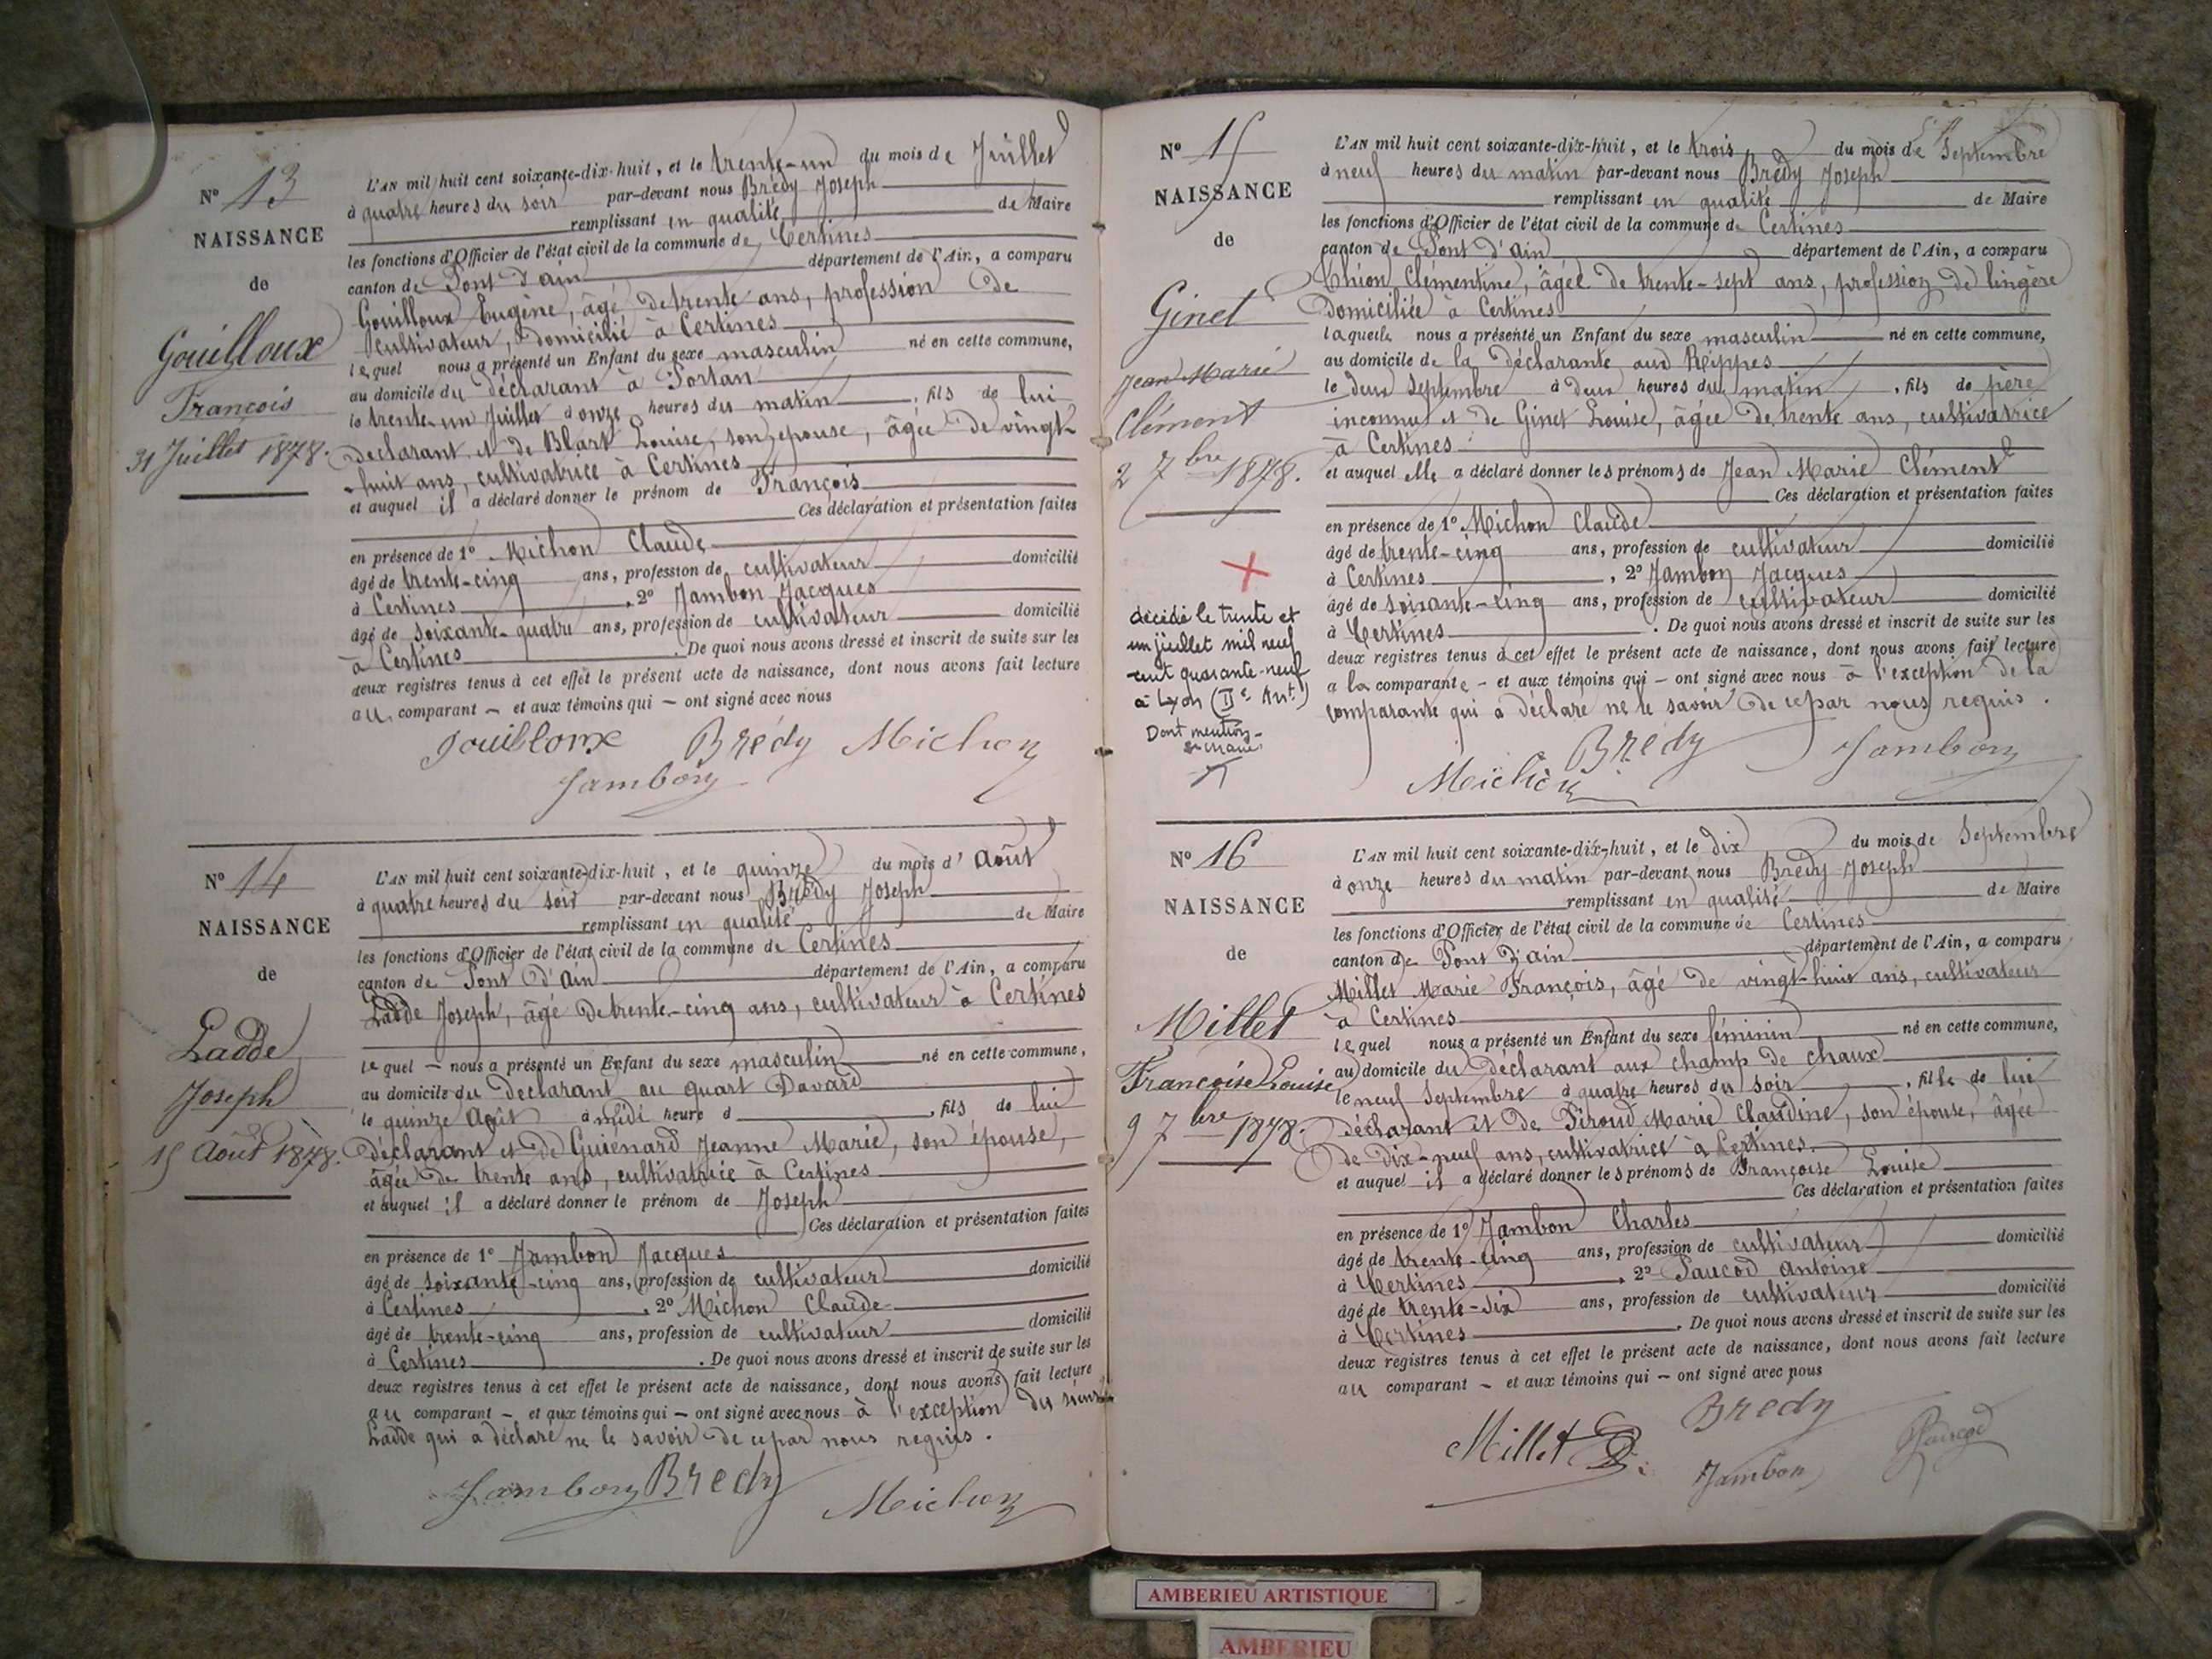 N° 13
NAISSANCE
de
Gouilloux
François
31 Juillet 1878.
L'AN mil huit cent soixante-dix-huit, et le trente-un du mois de Juillet
à quatre heures du soir par-devant nous Brédy Joseph
remplissant en qualité de Maire
les fonctions d'Officier de l'état civil de la commune de Certines
canton de Pont d'ain département de l'Ain, a comparu
Gouilloux Eugène, âgé de trente ans, profession de
cultivateur, domicilié à Certines
lequel nous a présenté un Enfant du sexe masculin né en cette commune,
au domicile du déclarant à Portan
le trente-un Juillet à onze heures du matin, fils de lui
déclarant et de Blart Louise, son épouse, âgée de vingt-
-huit ans, cultivatrice à Certines
et auquel il a déclaré donner le prénom de François
Ces déclaration et présentation faites
en présence de 1° Michon Claude
âgé de trente-cinq ans, profession de cultivateur domicilié
à Certines, 2° Jambon Jacques
âgé de soixante-quatre ans, profession de cultivateur domicilié
à Certines. De quoi nous avons dressé et inscrit de suite sur les
deux registres tenus à cet effet le présent acte de naissance, dont nous avons fait lecture
au comparant – et aux témoins qui – ont signé avec nous
Gouilloux Brédy Michon
Jambon
N° 14
NAISSANCE
de
Ladde
Joseph
15 Août 1878.
L'AN mil huit cent soixante-dix-huit, et le quinze du mois d' Août
à quatre heures du soir par-devant nous Brédy Joseph
remplissant en qualité de Maire
les fonctions d'Officier de l'état civil de la commune de Certines
canton de Pont d'ain département de l'Ain, a comparu
Ladde Joseph, âgé de trente-cinq ans, cultivateur à Certines
lequel – nous a présenté un Enfant du sexe masculin né en cette commune,
au domicile du déclarant au quart Davard
le quinze Août à midi heure d, fils de lui
déclarant et de Guienard Jeanne Marie, son épouse,
âgée de trente ans, cultivatrice à Certines
et auquel il a déclaré donner le prénom de Joseph
Ces déclaration et présentation faites
en présence de 1° Jambon Jacques
âgé de soixante-cinq ans, profession de cultivateur domicilié
à Certines, 2° Michon Claude
âgé de trente-cinq ans, profession de cultivateur domicilié
à Certines. De quoi nous avons dressé et inscrit de suite sur les
deux registres tenus à cet effet le présent acte de naissance, dont nous avons fait lecture
au comparant – et aux témoins qui – ont signé avec nous à l'exception du sieur
Ladde qui a déclaré ne le savoir de ce par nous requis.
Jambon Bredy
Michon
N° 15
NAISSANCE
de
Ginet
Jean Marie
Clément
2 7bre 1878.
décédé le trente et
un juillet mil neuf
cent quarante-neuf
à Lyon (IIe Art.)
Dont mention
L'AN mil huit cent soixante-dix-huit, et le trois du mois de Septembre
à neuf heures du matin par-devant nous Brédy Joseph
remplissant en qualité de Maire
les fonctions d'Officier de l'état civil de la commune de Certines
canton de Pont d'ain département de l'Ain, a comparu
Chion Clémentine, âgée de trente-sept ans, profession de lingère
domiciliée à Certines
laquelle nous a présenté un Enfant du sexe masculin né en cette commune,
au domicile de la déclarante aux Reippes
le deux Septembre à deux heures du matin, fils de père
inconnu et de Ginet Louise, âgée de trente ans, cultivatrice
à Certines
et auquel elle a déclaré donner les prénoms de Jean Marie Clément
Ces déclaration et présentation faites
en présence de 1° Michon Claude
âgé de trente-cinq ans, profession de cultivateur domicilié
à Certines, 2° Jambon Jacques
âgé de soixante-cinq ans, profession de cultivateur domicilié
à Certines. De quoi nous avons dressé et inscrit de suite sur les
deux registres tenus à cet effet le présent acte de naissance, dont nous avons fait lecture
a la comparante – et aux témoins qui – ont signé avec nous à l'exception de la
comparante qui a déclaré ne le savoir de ce par nous requis.
Brédy Jambon
Michon
N° 16
NAISSANCE
de
Millet
Françoise Louise
9 7bre 1878.
L'AN mil huit cent soixante-dix-huit, et le dix du mois de Septembre
à onze heures du matin par-devant nous Brédy Joseph
remplissant en qualité de Maire
les fonctions d'Officier de l'état civil de la commune de Certines
canton de Pont d'ain département de l'Ain, a comparu
Millet Marie François, âgé de vingt-huit ans, cultivateur
à Certines
lequel nous a présenté un Enfant du sexe féminin né en cette commune,
au domicile du déclarant aux champ de chaux
le neuf Septembre à quatre heures du soir, fille de lui
déclarant et de Piroud Marie Claudine, son épouse, âgée
de dix-neuf ans, cultivatrice à Certines.
et auquel il a déclaré donner les prénoms de Françoise Louise
Ces déclaration et présentation faites
en présence de 1° Jambon Charles
âgé de trente-cinq ans, profession de cultivateur domicilié
à Certines, 2° Paucod Antoine
âgé de trente-six ans, profession de cultivateur domicilié
à Certines. De quoi nous avons dressé et inscrit de suite sur les
deux registres tenus à cet effet le présent acte de naissance, dont nous avons fait lecture
au comparant – et aux témoins qui – ont signé avec nous
Millet Bredy Paucod
Jambon
AMBERIEU ARTISTIQUE
AMBERIEU